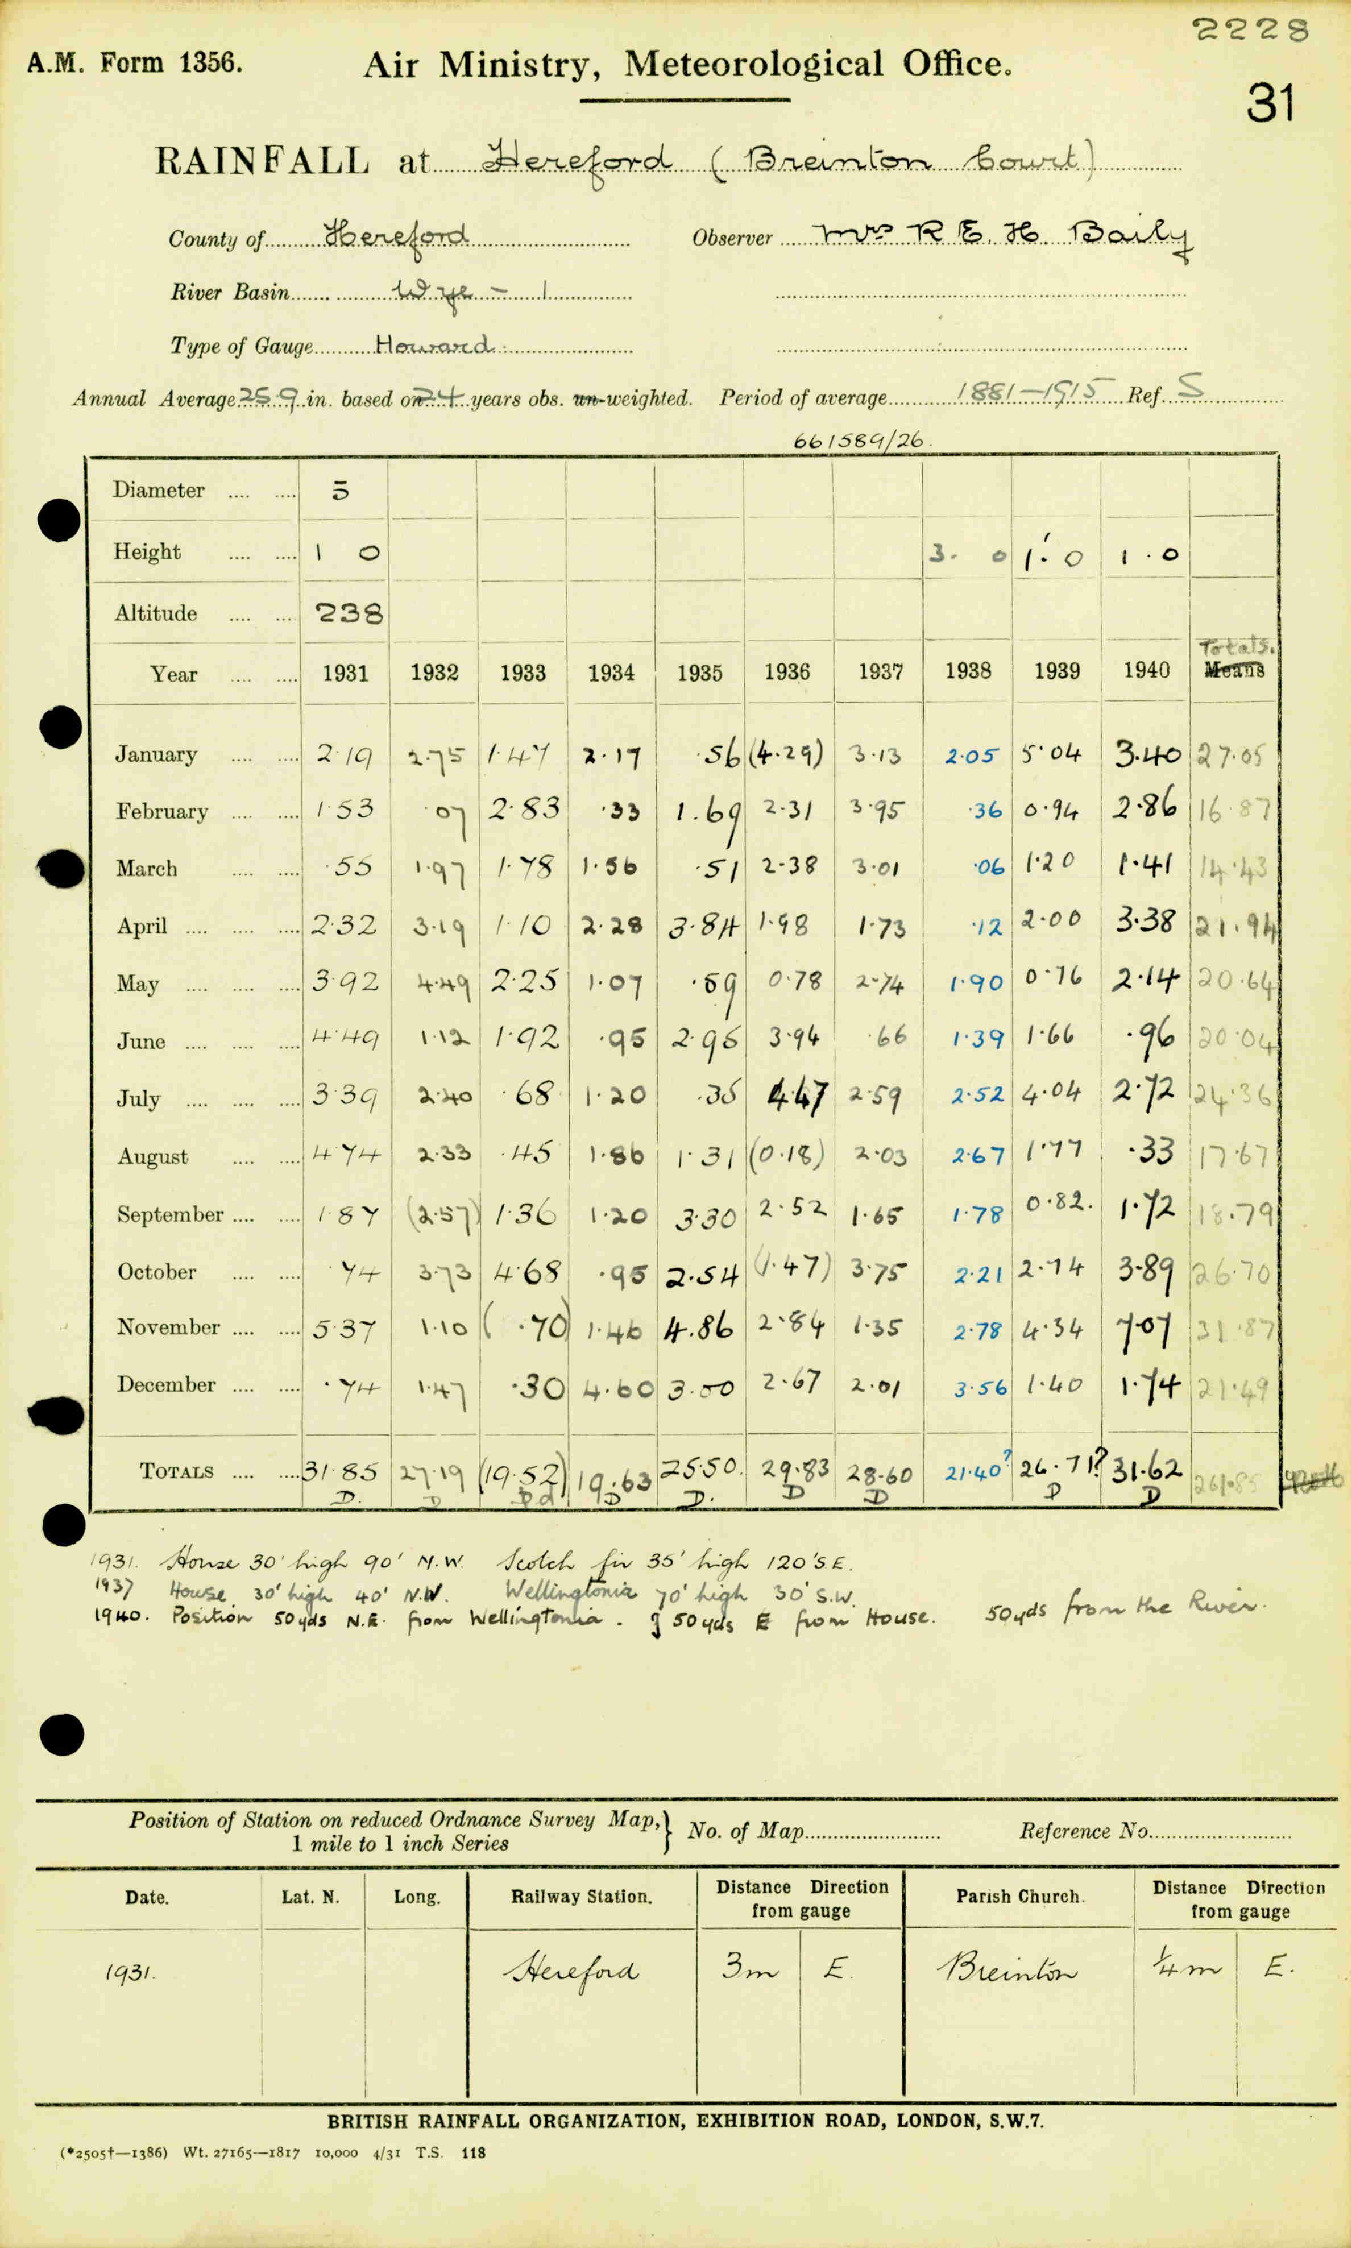 2228
A.M. Form 1356. Air Ministry, Meteorological Office.
31
RAINFALL at Hereford (Breinton Court)
County of Hereford Observer Mrs R E. H. Baily
River Basin Wye - 1
Type of Gauge Howard
Annual Average 25.9 in. based on 24 years obs. un-weighted. Period of average 1881-1915 Ref. S
661589/26.
Diameter 5
Height 1 0 3. 0 1'. 0 1 . 0
Altitude 238
Totals.
Year 1931 1932 1933 1934 1935 1936 1937 1938 1939 1940 Means
January 2.19 2.75 1.47 2.17 .56 (4.29) 3.13 2.05 5.04 3.40 27.05
February 1.53 .07 2.83 .33 1.69 2.31 3.95 .36 0.94 2.86 16.87
March .55 1.97 1.78 1.56 .51 2.38 3.01 .06 1.20 1.41 14.43
April 2.32 3.19 1.10 2.28 3.84 1.98 1.73 .12 2.00 3.38 21.94
May 3.92 4.49 2.25 1.07 .59 0.78 2.74 1.90 0.76 2.14 20.64
June 4.49 1.12 1.92 .95 2.95 3.94 .66 1.39 1.66 .96 20.04
July 3.39 2.40 .68 1.20 .35 4.47 2.59 2.52 4.04 2.72 24.36
August 4.74 2.33 .45 1.86 1.31 (0.18) 2.03 2.67 1.77 .33 17.67
September 1.87 (2.57) 1.36 1.20 3.30 2.52 1.65 1.78 0.82. 1.72 18.79
October .74 3.73 4.68 .95 2.54 (1.47) 3.75 2.21 2.74 3.89 26.70
November 5.37 1.10 ( .70) 1.46 4.86 2.84 1.35 2.78 4.34 7.07 31.87
December .74 1.47 .30 4.60 3.00 2.67 2.01 3.56 1.40 1.74 21.49
TOTALS 31.85 27.19 (19.52) 19.63 25.50. 29.83 28.60 21.40? 26.71? 31.62 261.85
D. D D d D D. D D D D
1931. House 30' high 90' N.W. Scotch fir 35' high 120' S.E.
1937 House 30' high 40' N.W. Wellingtonia 70' high 30' S.W.
1940. Position 50yds N.E. from Wellingtonia. & 50 yds E from House. 50yds from the River.
Position of Station on reduced Ordnance Survey Map, } No. of Map Reference No.
1 mile to 1 inch Series
Date. Lat. N. Long. Railway Station. Distance Direction from gauge Parish Church. Distance Direction from gauge
1931. Hereford 3m E. Breinton ¼ m E.
BRITISH RAINFALL ORGANIZATION, EXHIBITION ROAD, LONDON, S.W.7.
(*2505†—1386) Wt. 27165—1817 10,000 4/31 T.S. 118